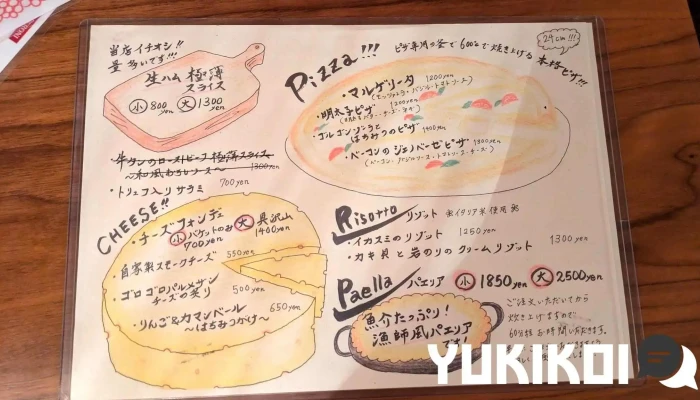 当店イチオシ!!
量多いです!!!
生ハム 極薄
スライス
小 800yen 大 1300yen
牛タンのローストビーフ 極薄スライス
1300yen
・トリュフ入りサラミ 700yen
CHEESE!!
・チーズフォンデュ
小 バケットのみ 700yen
大 具沢山 1400yen
・自家製スモークチーズ 550yen
・ゴロゴロパルメザン
チーズの炙り 500yen
・りんご&カマンベール 650yen
〜はちみつがけ〜
Pizza!!!
ピザ専用の釜で600℃で焼き上げる 本格ピザ!!!
24cm!!!
・マルゲリータ 1200yen
・明太子ピザ 1200yen
・ゴルゴンゾーラと
はちみつのピザ
・ベーコンのジェノベーゼピザ 1300yen
Risotto リゾット ※イタリア米使用※
・イカスミのリゾット 1250yen
・カキ貝と岩のりのクリームリゾット 1300yen
Paella パエリア 小 1850yen 大 2500yen
魚介たっぷり!
漁師風パエリア
です!
ご注文いただいてから
炊き上げますので
60分程お時間いただきます。
YUKIKOI